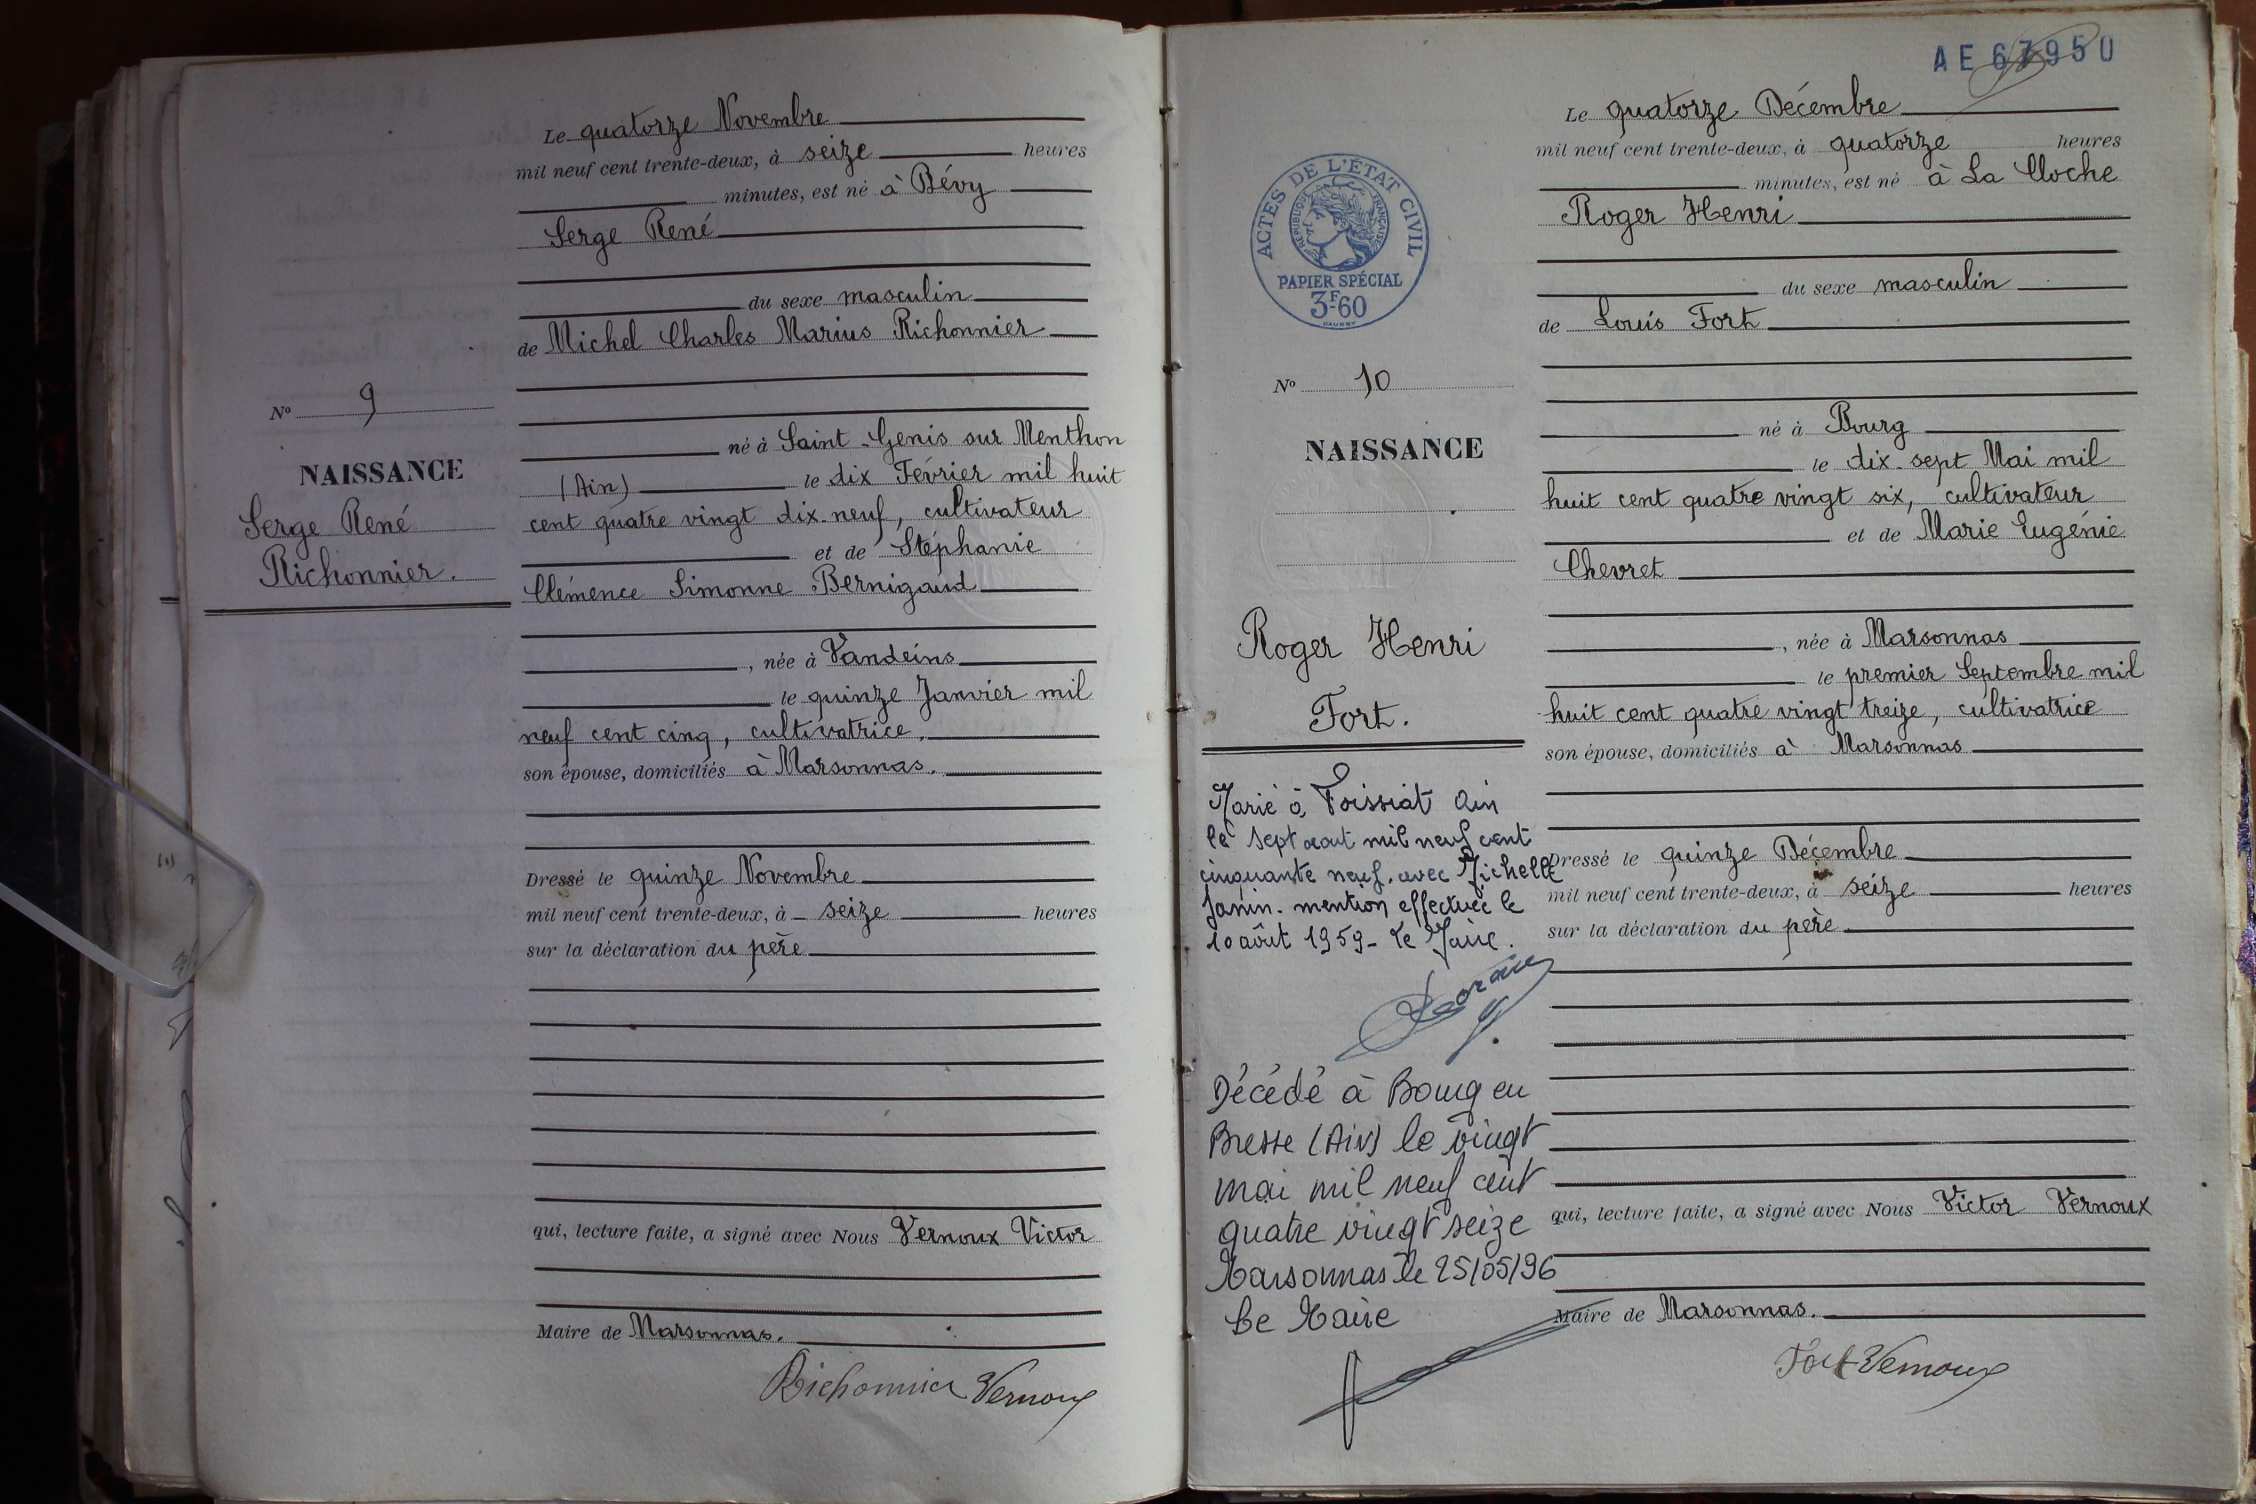 Le quatorze Novembre
mil neuf cent trente-deux, à seize heures
minutes, est né à Bévy
Serge René
du sexe masculin
de Michel Charles Marius Richonnier
né à Saint-Genis sur Menthon
(Ain) le dix Février mil huit
cent quatre vingt dix-neuf, cultivateur
et de Stéphanie
Clémence Simonne Bernigaud
, née à Vandeins
le quinze Janvier mil
neuf cent cinq, cultivatrice,
son épouse, domiciliés à Marsonnas.
Dressé le quinze Novembre
mil neuf cent trente-deux, à seize heures
sur la déclaration du père
qui, lecture faite, a signé avec Nous Vernoux Victor
Maire de Marsonnas.
Richonnier Vernoux
No 9
NAISSANCE
Serge René
Richonnier.
AE 67950
ACTES DE L'ÉTAT CIVIL
RÉPUBLIQUE FRANÇAISE
PAPIER SPÉCIAL
3F-60
No 10
NAISSANCE
Roger Henri
Fort.
Marié à Foissiat Ain
le sept aout mil neuf cent
cinquante neuf. avec Michelle
Janin. mention effectuée le
10 août 1959 - Le Maire.
Décédé à Bourg en
Bresse (Ain) le vingt
mai mil neuf cent
quatre vingt seize
Marsonnas le 25/05/96
Le Maire
Le quatorze Décembre
mil neuf cent trente-deux, à quatorze heures
minutes, est né à La Cloche
Roger Henri
du sexe masculin
de Louis Fort
né à Bourg
le dix-sept Mai mil
huit cent quatre vingt six, cultivateur
et de Marie Eugénie
Chevret
, née à Marsonnas
le premier Septembre mil
huit cent quatre vingt treize, cultivatrice
son épouse, domiciliés à Marsonnas
Dressé le quinze Décembre
mil neuf cent trente-deux, à seize heures
sur la déclaration du père
qui, lecture faite, a signé avec Nous Victor Vernoux
Maire de Marsonnas.
Fort Vernoux